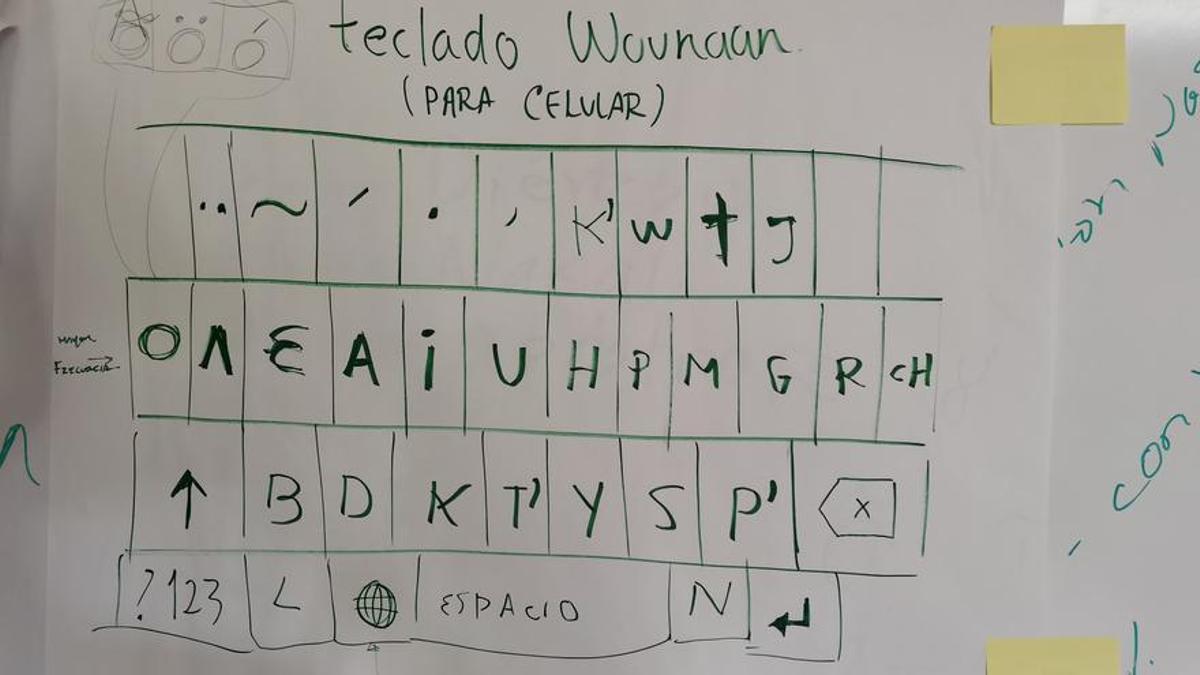 Ä Ö Ó
teclado Wounaan
(PARA CELULAR)
¨ ~ ´ . , K' W t J
mayor Frecuencia → O Ʌ Ɛ A i U H P M G R CH
↑ B D K T' Y S P' X
?123 L ESPACIO N ↵
ion
con